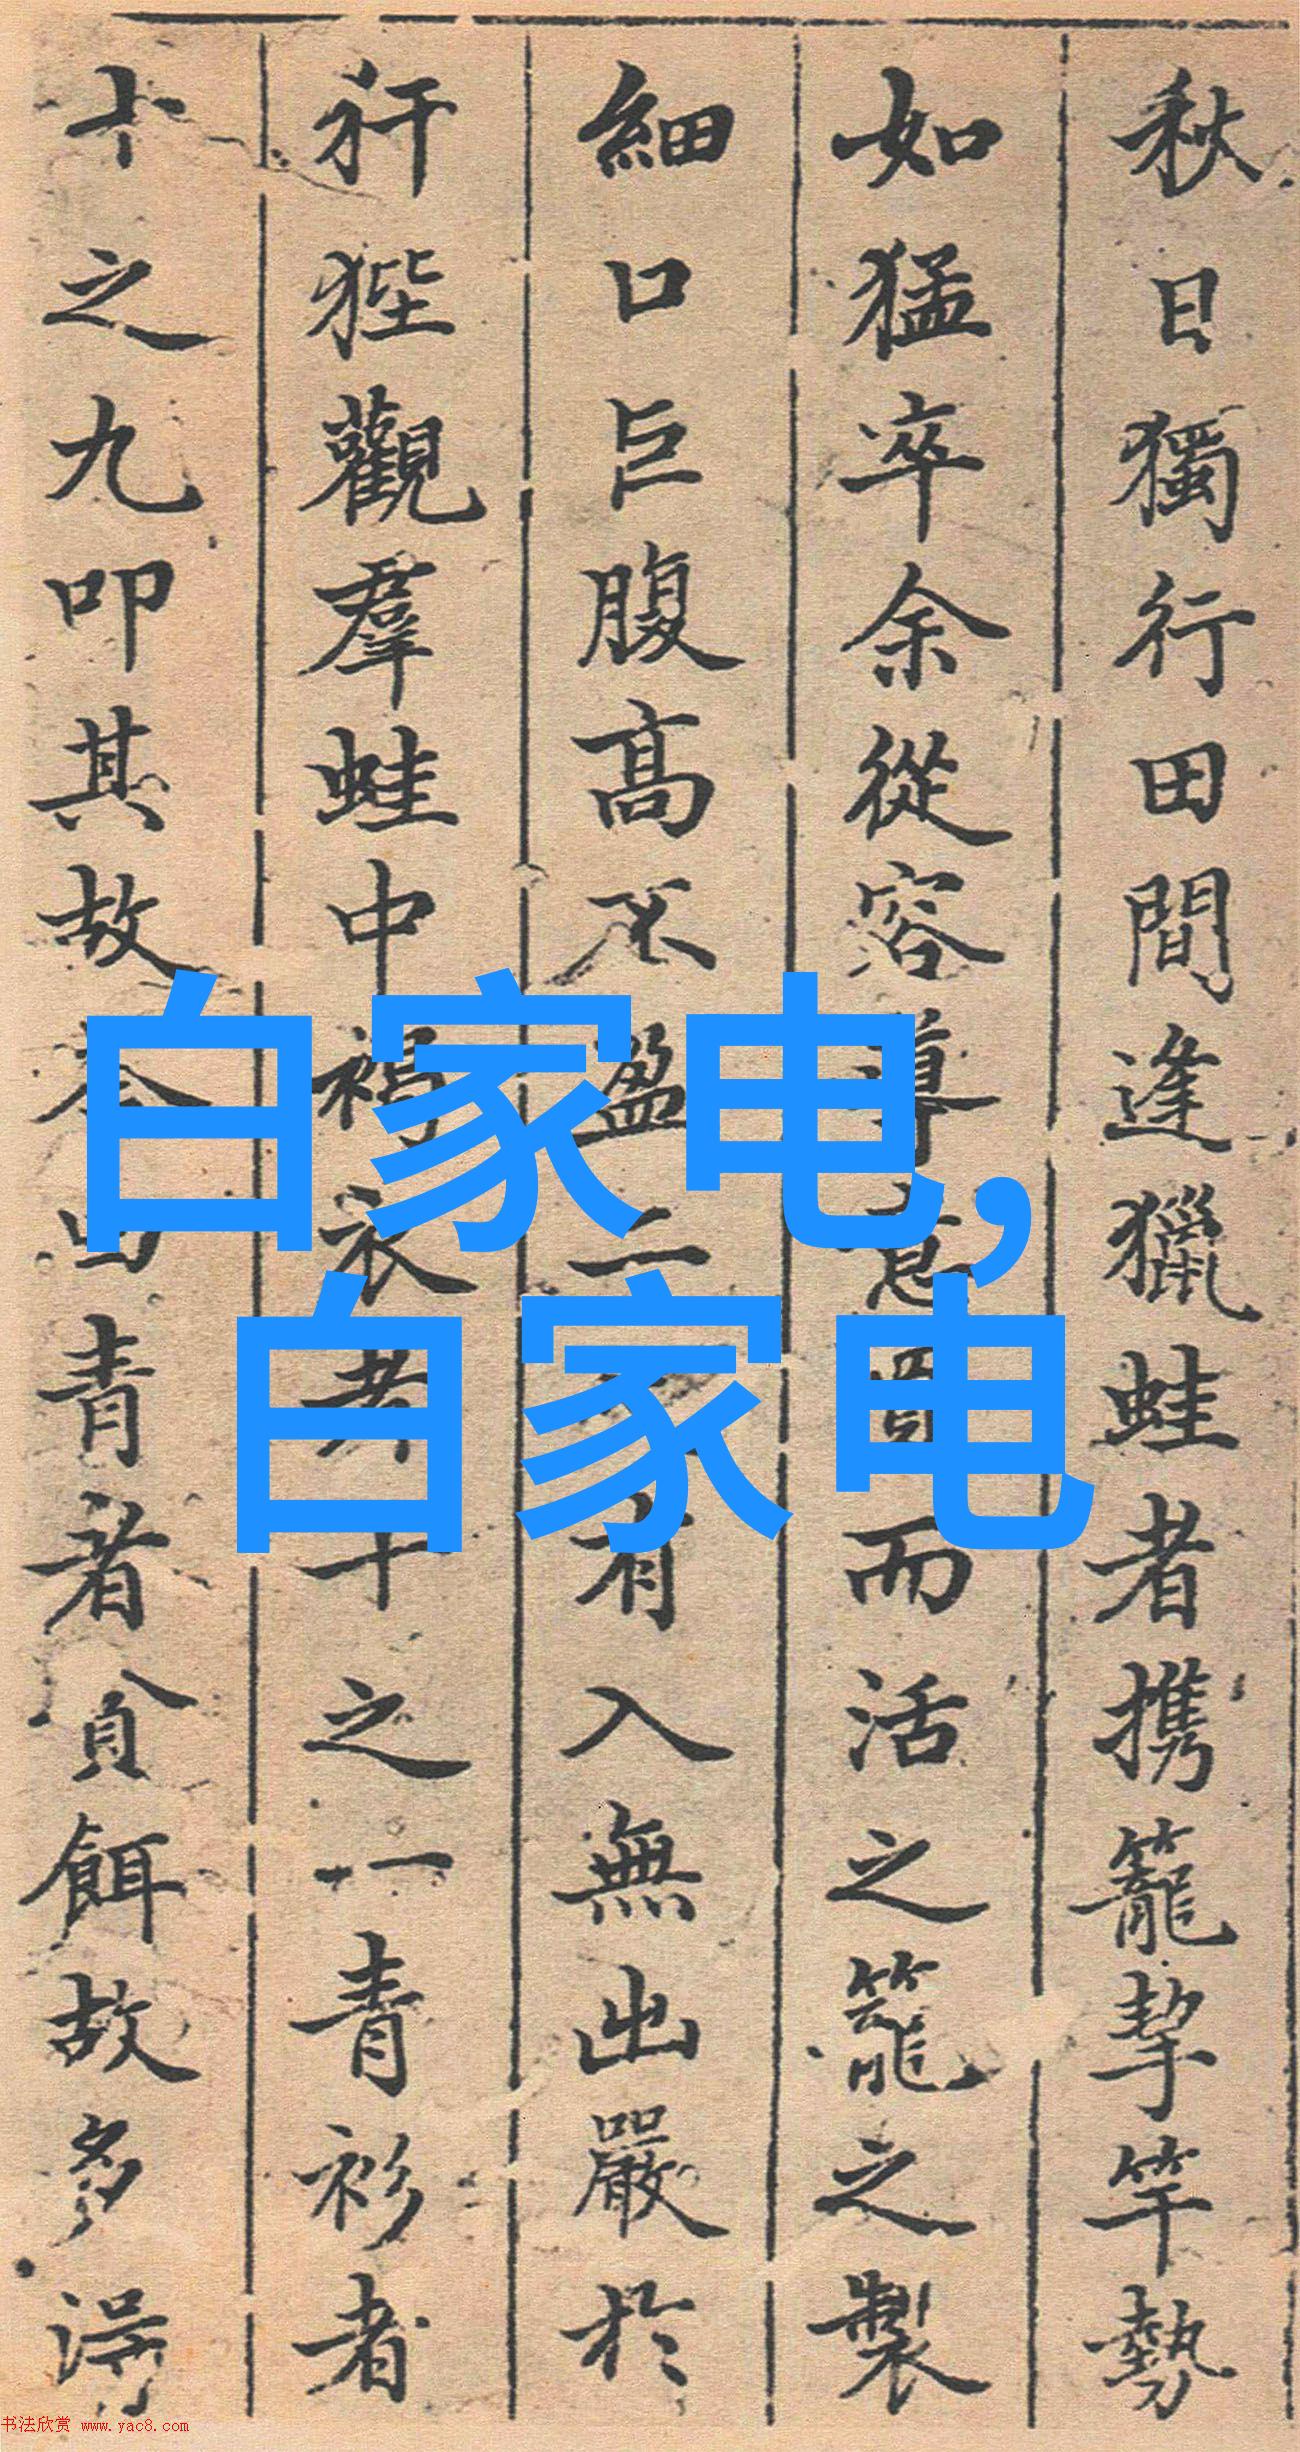 秋日獨行田間逢獵蛙者携籠挈竿勢
如猛卒余從容導意而活之籠之製
細口巨腹高不盈二有入無出嚴於
犴狴觀羣蛙中褐衣者十之一青衫者
十之九叩其故答曰青者貪餌故多得
白家电,
白家电
书法欣赏 www.yac8.com